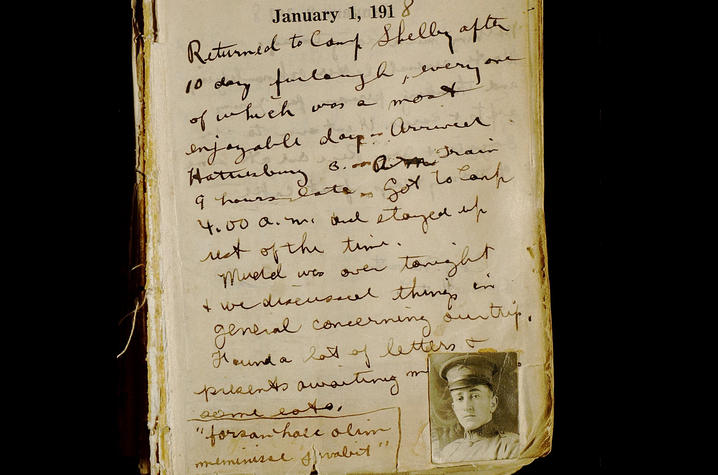 January 1, 1918
Returned to Camp Shelby after
10 day furlough, everyone
of which was a most
enjoyable day. Arrived
Hattiesburg 3.00 A.M. Train
9 hours late. Got to Camp
4.00 a.m. and stayed up
rest of the time.
Mudd was over tonight
+ we discussed things in
general concerning our trip.
Found a lot of letters +
presents awaiting
some eats.
"forsan haec olim
meminisse juvabit"